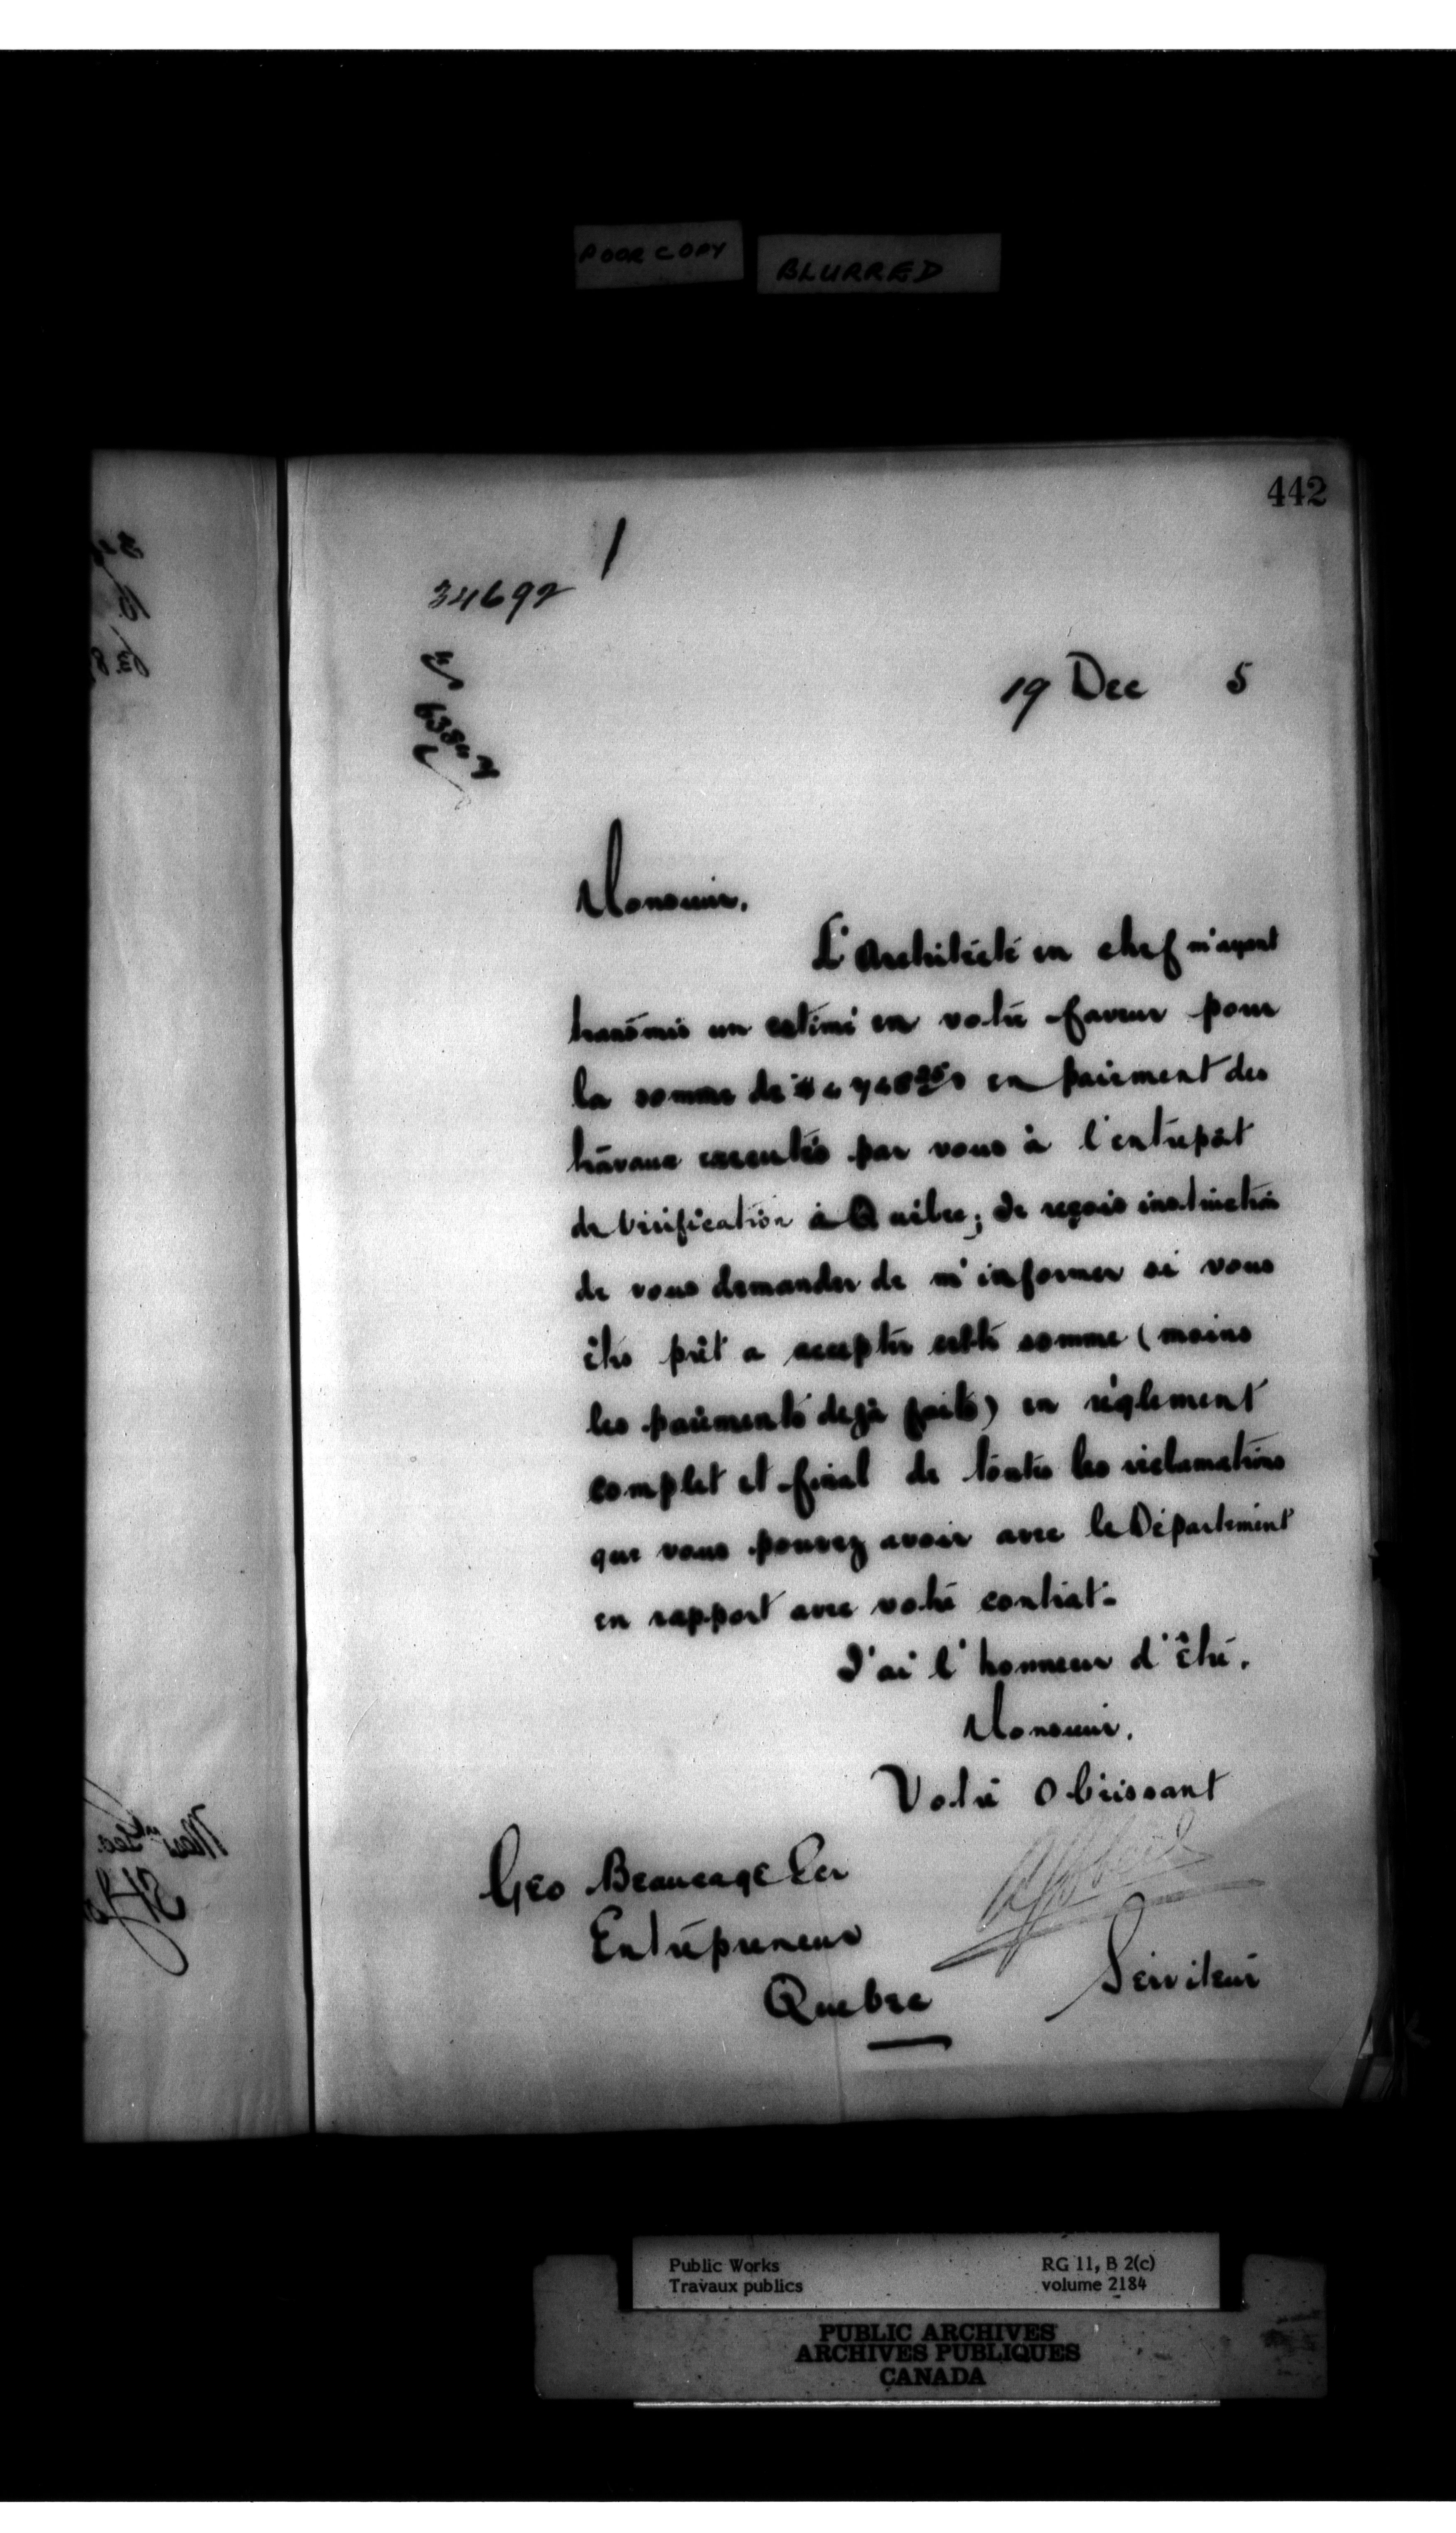 POOR COPY
BLURRED
442
34692
19 Dec 5
Monsieur,
L'Architecte en chef m'ayant
transmis un estimé en votre faveur pour
la somme de en paiement des
travaux executés par vous à l'entrepôt
de Vérification à Québec; Je reçois instruction
de vous demander de m'informer si vous
êtes prêt a accepter cette somme (moins
les paiements dejà faits) en règlement
complet et final de toutes les réclamations
que vous pouvez avoir avec le Département
en rapport avec votre contrat.
J'ai l'honneur d'être,
Monsieur,
Votre Obéissant
Geo Beaucage Ecr
Entrepreneur
Serviteur
Quebec
Public Works RG 11, B 2(c)
Travaux publics volume 2184
PUBLIC ARCHIVES
ARCHIVES PUBLIQUES
CANADA